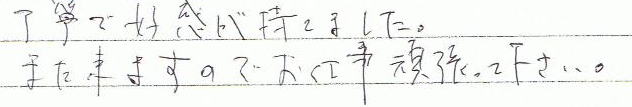 丁寧で好感が持てました。
また来ますのでお仕事頑張って下さい。